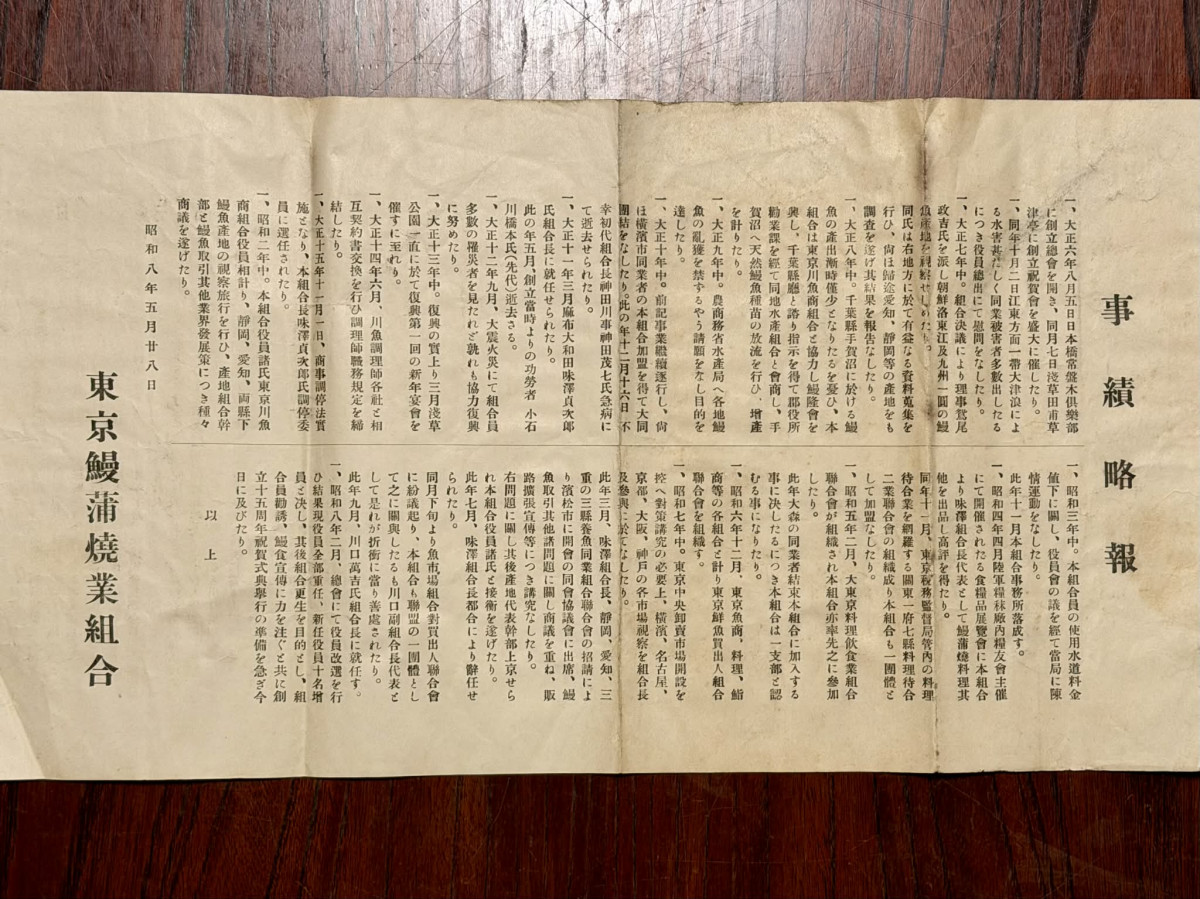 事績略報
一、大正六年八月五日日本橋常盤木倶樂部
に創立總會を開き、同月七日淺草田甫草
津亭に創立祝賀會を盛大に催したり。
一、同年十月二日江東方面一帶大津浪によ
る水害甚だしく同業被害者多數出したる
につき役員總出にて慰問をなしたり。
一、大正七年中。組合決議により理事鷲尾
政吉氏を派し朝鮮洛東江及九州一圓の鰻
魚產地を視察せしめたり。
同氏は各地方に於て有益なる資料蒐集を
行ひ、尙ほ歸途愛知、靜岡等の產地をも
調査を遂げ其結果を報告なしたり。
一、大正八年中。千葉縣手賀沼に於ける鰻
魚の產出漸時僅少となりたるを憂ひ、本
組合は東京川魚商組合と協力し鰻隆會を
興し、千葉縣廳と諮り指示を得て郡役所
勸業課を經て同地水產組合と會商し、手
賀沼へ天然鰻魚種苗の放流を行ひ、增產
を計りたり。
一、大正九年中。農商務省水產局へ各地鰻
魚の亂獲を禁ずるやう請願をなし目的を
達したり。
一、大正十年中。前記事業繼續遂行し、尙
ほ橫濱市同業者の本組合加盟を得て大同
團結をなしたり。此の年十二月十六日 不
幸初代組合長神田川事神田茂七氏急病に
て逝去せられたり。
一、大正十一年三月麻布大和田味澤貞次郎
氏組合長に就任せられたり。
此の年五月、創立當時よりの功勞者 小石
川橋本氏(先代)逝去さる。
一、大正十二年九月、大震火災にて組合員
多數の罹災者を見たれど孰れも協力復興
に努めたり。
一、大正十三年中。復興の實上り三月淺草
公園一直に於て復興第一回の新年宴會を
催すに至れり。
一、大正十四年六月、川魚調理師各社と相
互契約書交換を行ひ調理師職務規定を締
結したり。
一、大正十五年十一月一日、商事調停法實
施となり、本組合長味澤貞次郎氏調停委
員に選任されたり。
一、昭和二年中。本組合役員諸氏東京川魚
商組合役員相計り、靜岡、愛知、両縣下
鰻魚產地の視察旅行を行ひ、產地組合幹
部と鰻魚取引其他業界發展策につき種々
商議を遂げたり。
一、昭和三年中。本組合員の使用水道料金
値下に關し、役員會の議を經て當局に陳
情運動をなしたり。
此年十一月本組合事務所落成す。
一、昭和四年四月陸軍糧秣廠内糧友會主催
にて開催されたる食糧品展覽會に本組合
より味澤組合長代表として鰻蒲燒料理其
他を出品し高評を得たり。
同年十一月、東京稅務監督局管內の料理
待合業を網羅する關東一府七縣料理待合
二業聯合會の組織成り本組合も一團體と
して加盟なしたり。
一、昭和五年二月、大東京料理飲食業組合
聯合會が組織され本組合亦率先之に參加
したり。
此年大森の同業者結束本組合に加入する
事に決したるにつき本組合は一支部と認
むる事になりたり。
一、昭和六年十二月、東京魚商、料理、鮨
商等の各組合と計り東京鮮魚買出人組合
聯合會を組織す。
一、昭和七年中。東京中央卸賣市場開設を
控へ對策講究の必要上、橫濱、名古屋、
京都、大阪、神戶の各市場視察を組合長
及參與に於てなしたり。
此年三月、味澤組合長、靜岡、愛知、三
重の三縣養魚同業組合聯合會の招請によ
り濱松市に開會の同會協議會に出席、鰻
魚取引其他諸問題に關し商議を重ね、販
路擴張宣傳等につき講究なしたり。
右問題に關し其後產地代表幹部上京せら
れ本組合役員諸氏と接衝を遂げたり。
此年七月、味澤組合長都合により辭任せ
られたり。
同月下旬より魚市場組合對買出人聯合會
に紛議起り、本組合も聯盟の一團體とし
て之に關與したるも川口副組合長代表と
して是れが折衝に當り善處されたり。
此年九月、川口萬吉氏組合長に就任す。
一、昭和八年二月、總會にて役員改選を行
ひ結果現役員全部重任、新任役員十名增
員と決し、其後組合更生を目的とし、組
合員勸誘、鰻食宣傳に力を注ぐと共に創
立十五周年祝賀式典擧行の準備を急ぎ今
日に及びたり。
以上
昭和八年五月廿八日
東京鰻蒲燒業組合